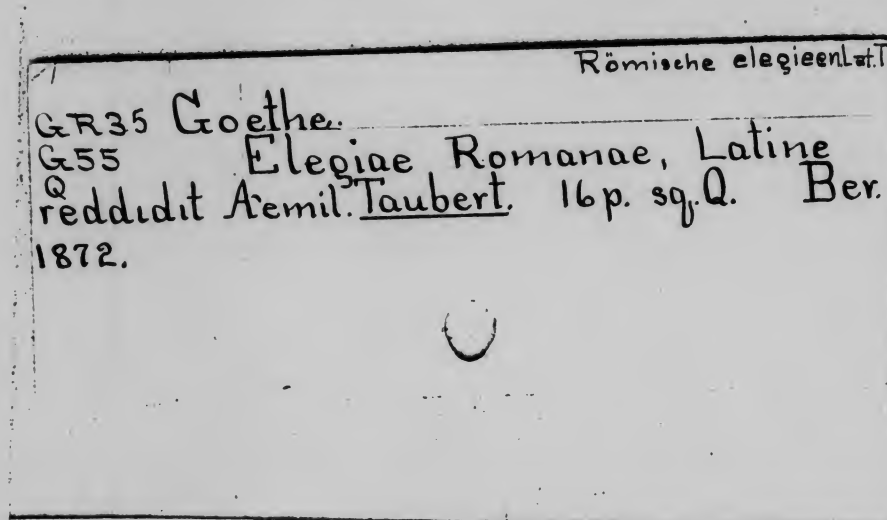 Römische elegieen Lat. T
GR35 Goethe.
G55 Elegiae Romanae, Latine
Q
reddidit Aemil. Taubert. 16p. sq. Q. Ber.
1872.